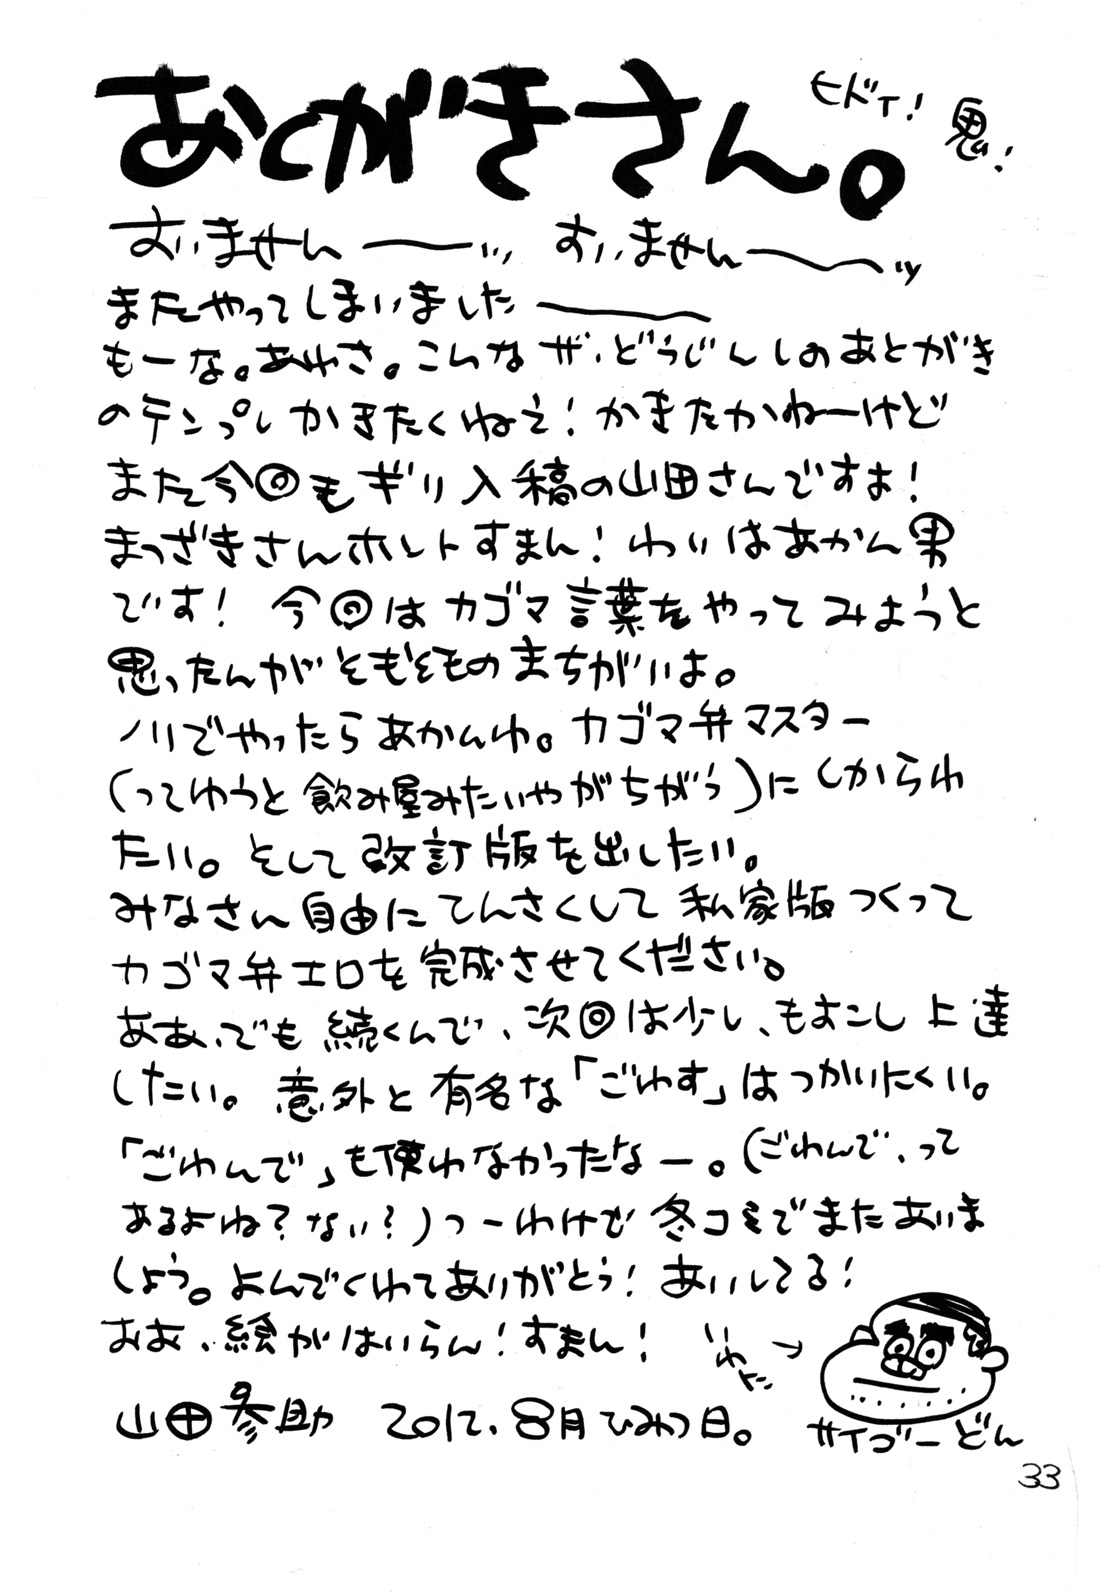 あとがきさん。
ヒドイ!
鬼!
すいません――ッ すいません――ッ
またやってしまいました――
もーな。あれさ。こんなザ・どうじんしのあとがき
のテンプレかきたくねえ!かきたかねーけど
また今回もギリ入稿の山田さんですよ!
まつざきさんホントすまん!わいはあかん男
です! 今回はカゴマ言葉をやってみようと
思ったんがそもそものまちがいよ。
ノリでやったらあかんわ。カゴマ弁マスター
(ってゆうと飲み屋みたいやがちがう)にしかられ
たい。そして改訂版を出したい。
みなさん自由にてんさくして私家版つくって
カゴマ弁エロを完成させてください。
ああ、でも続くんで、次回は少し、もすこし上達
したい。意外と有名な「ごわす」はつかいにくい。
「ごわんで」も使わなかったなー。(ごわんで、って
あるよね?ない?)つーわけで冬コミでまたあいま
しょう。よんでくれてありがとう!あいしてる!
おお、絵がはいらん!すまん!
いれた→
山田参助 2012.8月ひみつ日。
サイゴーどん
33